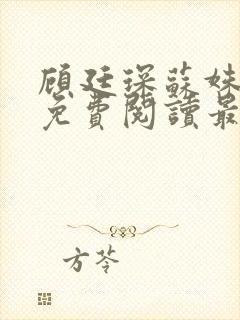 顾廷琛蘇妹
免費閱讀最
方苓